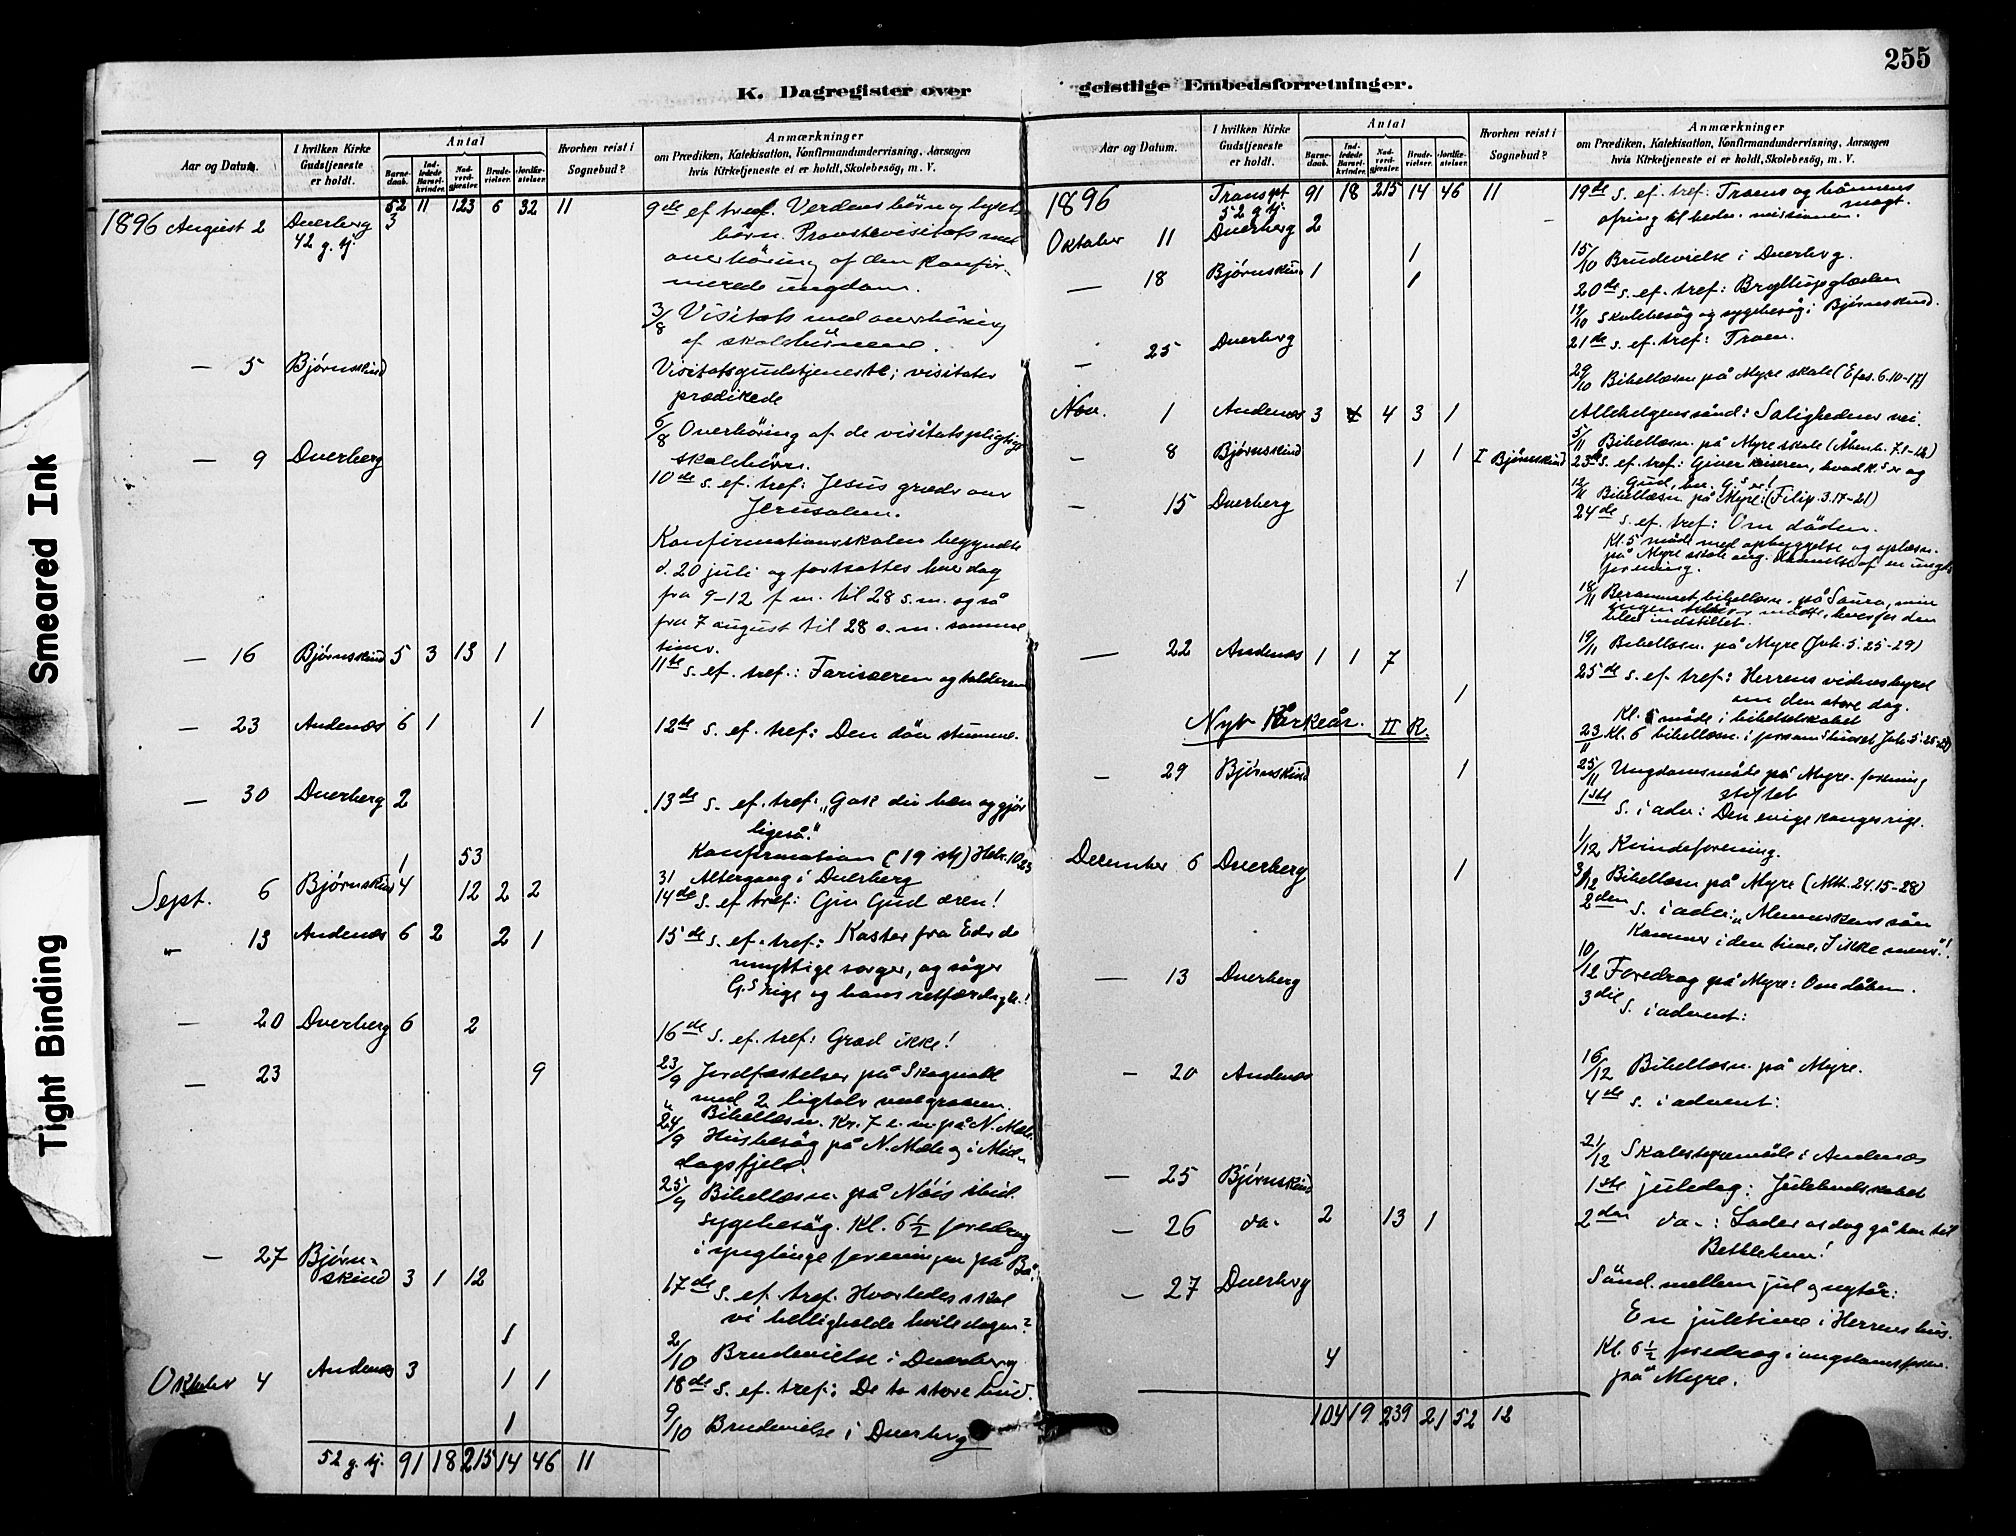 255
K. Dagregister over
geistlige Embedsforretninger.
Aar og Datum.
I hvilken Kirke Gudstjeneste er holdt.
Antal
Barnedaab.
Indledede Barselkvinder.
Nadverdgjester.
Brudevielser.
Jordfæstelser.
Hvorhen reist i Sognebud?
Anmærkninger
om Prædiken, Katekisation, Konfirmandundervisning, Aarsagen
hvis Kirketjeneste ei er holdt, Skolebesøg, m. V.
52 11 123 6 32 11
1896 August 2 Dverberg 3 9de ef tref. Verdens børn og lysets
42 g. tj. børn. Provstevisitats med
overhøring af den konfir-
merede ungdom.
3/8 Visitats med overhøring
af skolebørnene.
— 5 Bjørnskind Visitatsgudstjeneste; visitator
prædikede
6/8 Overhøring af de visitatspligtige
skolebørn.
— 9 Dverberg 10de s. ef. tref: Jesus græder over
Jerusalem.
Konfirmationsskolen begyndte
d. 20 juli og fortsattes hver dag
fra 9-12 f. m. til 28 s. m. også
fra 7 august til 28 s. m. samme
timer.
— 16 Bjørnskind 5 3 13 1 11te s. ef. tref.: Farisæeren og tolderen
— 23 Andenæs 6 1 1 12te s. ef. tref: Den døv stumme.
— 30 Dverberg 2 13de s. ef. tref: "Gak du hen og gjør
ligeså."
1 53 Konfirmation (19 stk) Hebr. 10.23
31 Altergang i Dverberg
Sept. 6 Bjørnskind 4 12 2 2 14de s. ef tref: Giv Gud æren!
" 13 Andenæs 6 2 2 1 15de s. ef. tref: Kaster fra Eder de
unyttige sorger, og søger
G.s rige og hans retfærdighd.!
— 20 Dverberg 6 2 16de s. ef. tref: Græd ikke!
— 23 9 23/9 Jordfæstelser på Skogvoll
med 2 ligtaler ved graven.
" Bibellæsn. Kr. 7 e. m. på N. Mæle.
24/9 Husbesøg på N. Mæle og i Mid-
dagsfjeld.
25/9 Bibellæsn. på Nöis ibid.
sygebesøg. Kl. 6½ foredrag
i ynglingeforeningen på Bø.
— 27 Bjørn-
skind 3 1 12 17de s. ef. tref. Hvorledes skal
vi helligholde hviledagen?
1 2/10 Brudevielse i Dverberg
Oktober 4 Andenæs 3 1 1 18de s. ef. tref: De to store bud.
1 9/10 Brudevielse i Dverberg
52 g. tj. 91 18 215 14 46 11
Aar og Datum.
I hvilken Kirke Gudstjeneste er holdt.
Antal
Barnedaab.
Indledede Barselkvinder.
Nadverdgjester.
Brudevielser.
Jordfæstelser.
Hvorhen reist i Sognebud?
Anmærkninger
om Prædiken, Katekisation, Konfirmandundervisning, Aarsagen
hvis Kirketjeneste ei er holdt, Skolebesøg, m. V.
1896 Transpt 91 18 215 14 46 11 19de s. ef. tref: Troens og bønnens
52 g tj. magt.
Oktober 11 Dverberg 2 ofring til hedn. missionen.
1 15/10 Brudevielse i Dverberg.
— 18 Bjørnskind 1 1 20de s. ef. tref: Bryllupsglæden
19/10 Skolebesøg og sygebesøg i Bjørnskind.
— 25 Dverberg 21de s. ef. tref: Troen.
29/10 Bibellæsn på Myre skole (Efes. 6.10-17)
Nov. 1 Andenæs 3 4 3 1 Allehelgenssønd: Salighedens vei.
5/11 Bibellæsn. på Myre skole (Åbenb. 7.1-12)
— 8 Bjørnskind 1 1 I Bjørnskind 23de s. ef. tref: Giver keiseren, hvad k.s er og
Gud, hv. G.s er!
12/11 Bibellæsn på Myre: (Filip. 3.17-21)
— 15 Dverberg 24de s. ef. tref: Om døden.
Kl. 5 møde med opbyggelse og oplæsn.
på Myre skole ang. dannelse af en ungd.
forening.
1 18/11 Berammet bibellæsn. på Saura, men
ingen mødte, hvorfor den
blev indstillet.
19/11 Bibellæsn. på Myre (Joh. 5. 25-29)
— 22 Andenæs 1 1 7 25de s. ef tref: Herrens vidnesbyrd
1 om den store dag.
Kl. 5 møde i bibelselskabet
Nyt Kirkeår. II R. 23/11 Kl. 6 bibellæsn. i Joh. 5. 25-29)
25/11 Ungdomsmøde på Myre. forening
stiftet
— 29 Bjørnskind 1 1ste s. i adv: Den evige konges rige.
1/12 Kvindeforening.
December 6 Dverberg 1 3/12 Bibellæsn på Myre (Mtt. 24.15-28)
2den s. i adv: "Menneskens søn
kommer i den time, I ikke mener"!
10/12 Foredrag på Myre: Om dåben.
— 13 Dverberg 3die s. i advent:
16/12 Bibellæsn. på Myre.
— 20 Andenæs 4de s. i advent:
21/12 Skolestyremøde i Andenæs
— 25 Bjørnskind 1ste juledag: Julebudskabet
— 26 do- 2 13 1 2den do-: Lader os dog gå hen til
Bethlehem!
— 27 Dverberg Sønd. mellem jul og nytår:
En juletime i Herrens hus.
4 Kl. 6½ foredrag i ungdomsforen.
på Myre.
104 19 239 21 52 12
Smeared Ink
Tight Binding